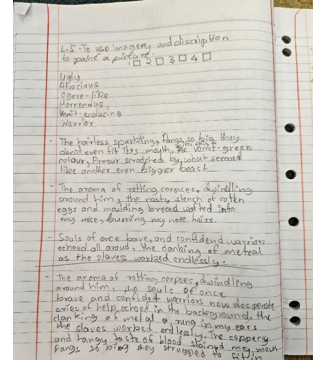 L.I - To use imagery and discription
to paint a picture. 1□ 2□ 3□ 4□
Ugly
Atrocious
Ogere-like
Horrendus
Vomit-enducing
Warrior
- The hairless sparkling, fangs so big they
don't even fit it's mouth, the vomit-green
colour. Armour scratched by what seemed
like another even bigger beast.
- The aroma of rotting corpses, dwindling
around him, the nasty stench of rotten
eggs and moulding bread wafted into
my nose, burning my nose hairs.
- Souls of once bave, and confidend warriors
echoed all around, the clanking of metreal
as the slaves worked endlessly.
- The aroma of rotting corpses, dwindling
around him, the souls of once
brave and confident warriors now desperate
cries of help, echoed in the background, the
clanking of metal rung in my ears
the slaves worked endlessly. The coppery
and tangy taste of blood stained my mouth
Fangs so big they struggled to fit in